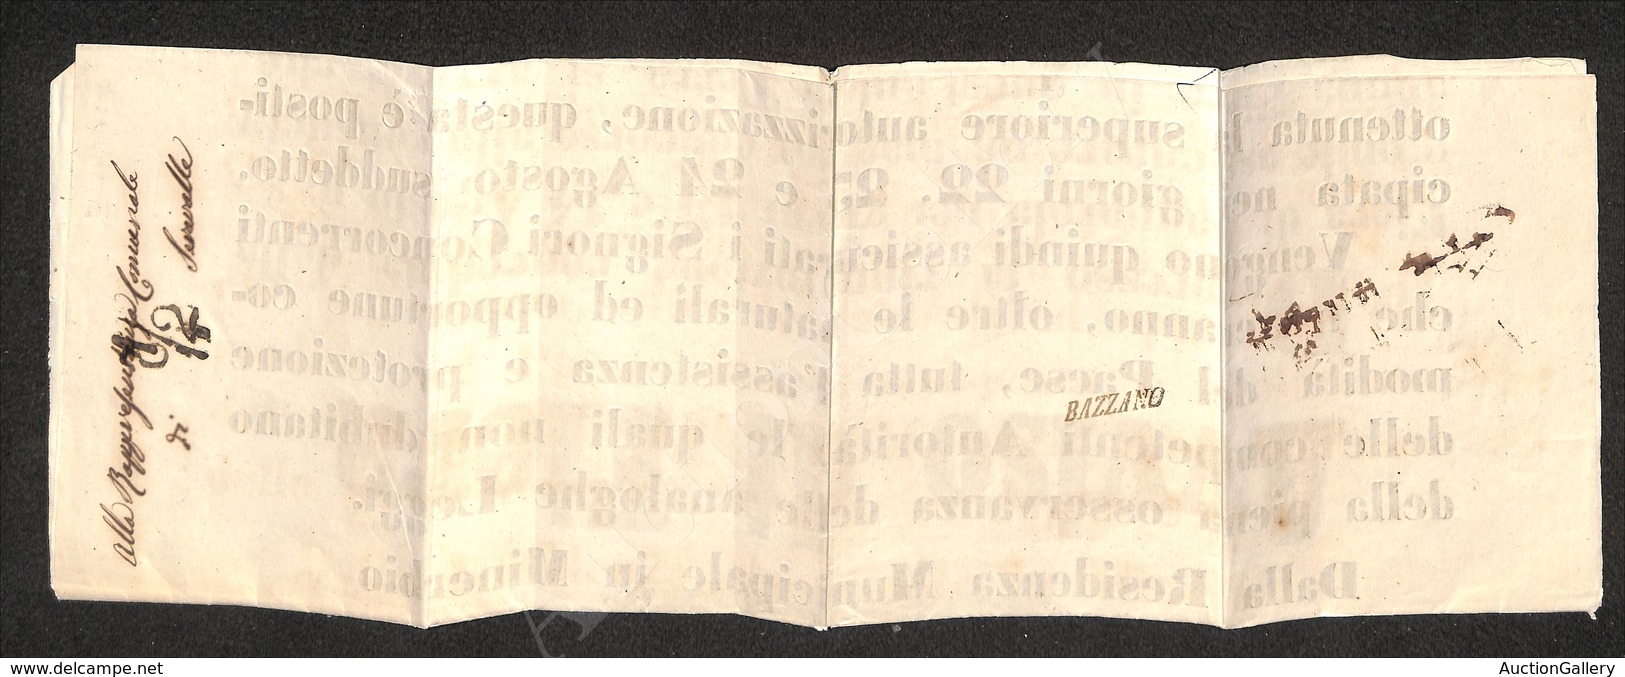 Alla Rappresentanza Comunale
di Serravalle
12
BAZZANO
ottenuta la superiore autorizzazione, questa è posti-
cipata nei giorni 22. 23 e 24 Agosto suddetto.
Vengono quindi assicurati i Signori Concorrenti
che avranno, oltre le naturali ed opportune co-
modità del Paese, tutta l'assistenza e protezione
delle competenti Autorità, le quali non dubitano
della piena osservanza delle analoghe Leggi.
Dalla Residenza Municipale in Minerbio
delcampe.net
AuctionGallery